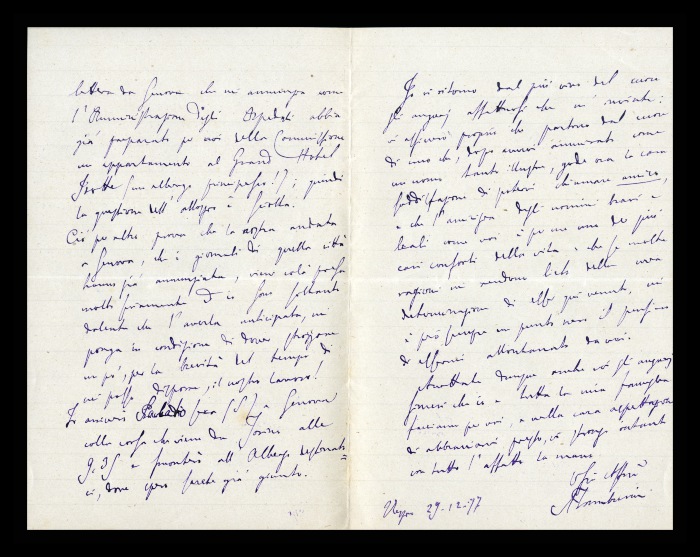 lettera da Genova che mi annunzia come
l'Amministrazione degli Ospedali abbia
già preparato per noi della Commissione
un appartamento al Grand Hotel
(un albergo principesco!); quindi
la questione dell'alloggio è sciolta.
Ciò per altro prova che la nostra andata
a Genova, che i giornali di quella città
hanno già annunziata, viene colà presa
molto seriamente. Io sono soltanto
dolente che l'averla anticipata, mi
ponga in condizione di dover strozzare
un po', per la brevità del tempo di
cui posso disporre, il nostro lavoro!
Io arriverò sera (5) a Genova
colla corsa che viene da Torino alle
9.35 e smonterò all'Albergo destinato-
ci, dove spero sarete già giunto.
Io vi ritorno dal più vivo del cuore
gli augurj affettuosi che m'inviate:
vi assicuro proprio che partono dal cuore
di uno che, dopo avervi ammirato come
un nome tanto illustre, gode ora la cara
soddisfazione di potervi chiamare amico,
e che l'amicizia degli uomini bravi e
leali come voi è per me uno dei più
cari conforti della vita e che se molte
ragioni mi rendono lieto della mia
determinazione di esser qui venuto, mi
è però sempre un punto nero il pensiero
di essermi allontanato da voi.
Accettate dunque anche voi gli augurj
sinceri che io e tutta la mia famiglia
facciamo per voi, e nella cara aspettazione
di abbracciarvi presto, vi stringo intanto
con tutto l'affetto la mano.
Vostro Affmo
ATamburini
29-12-77